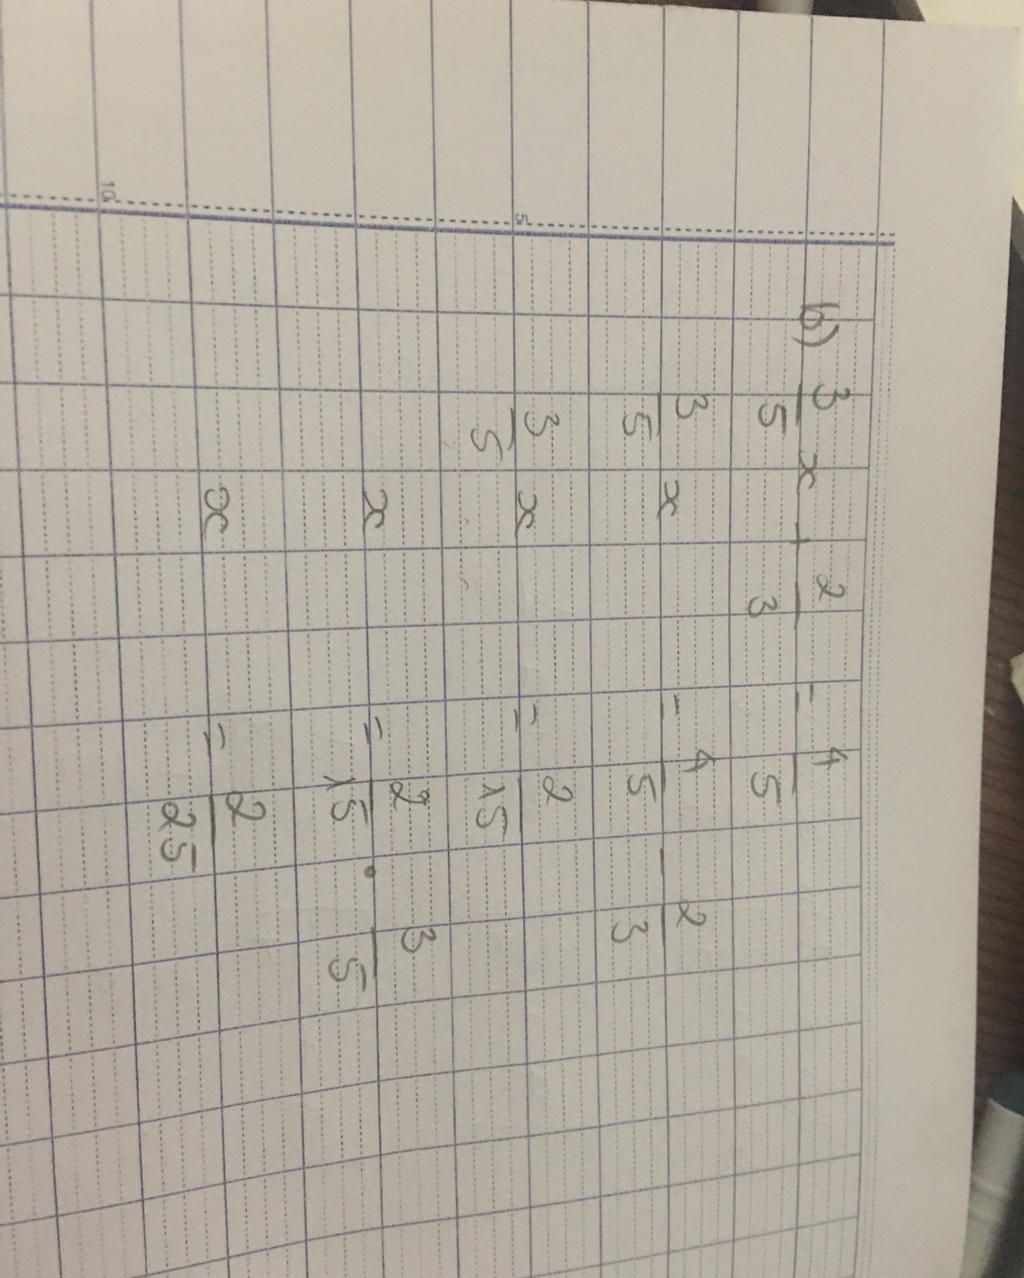 b) 3/5 x + 2/3 = 4/5
3/5 x = 4/5 - 2/3
3/5 x = 2/15
x = 2/15 . 3/5
x = 2/25
5
10